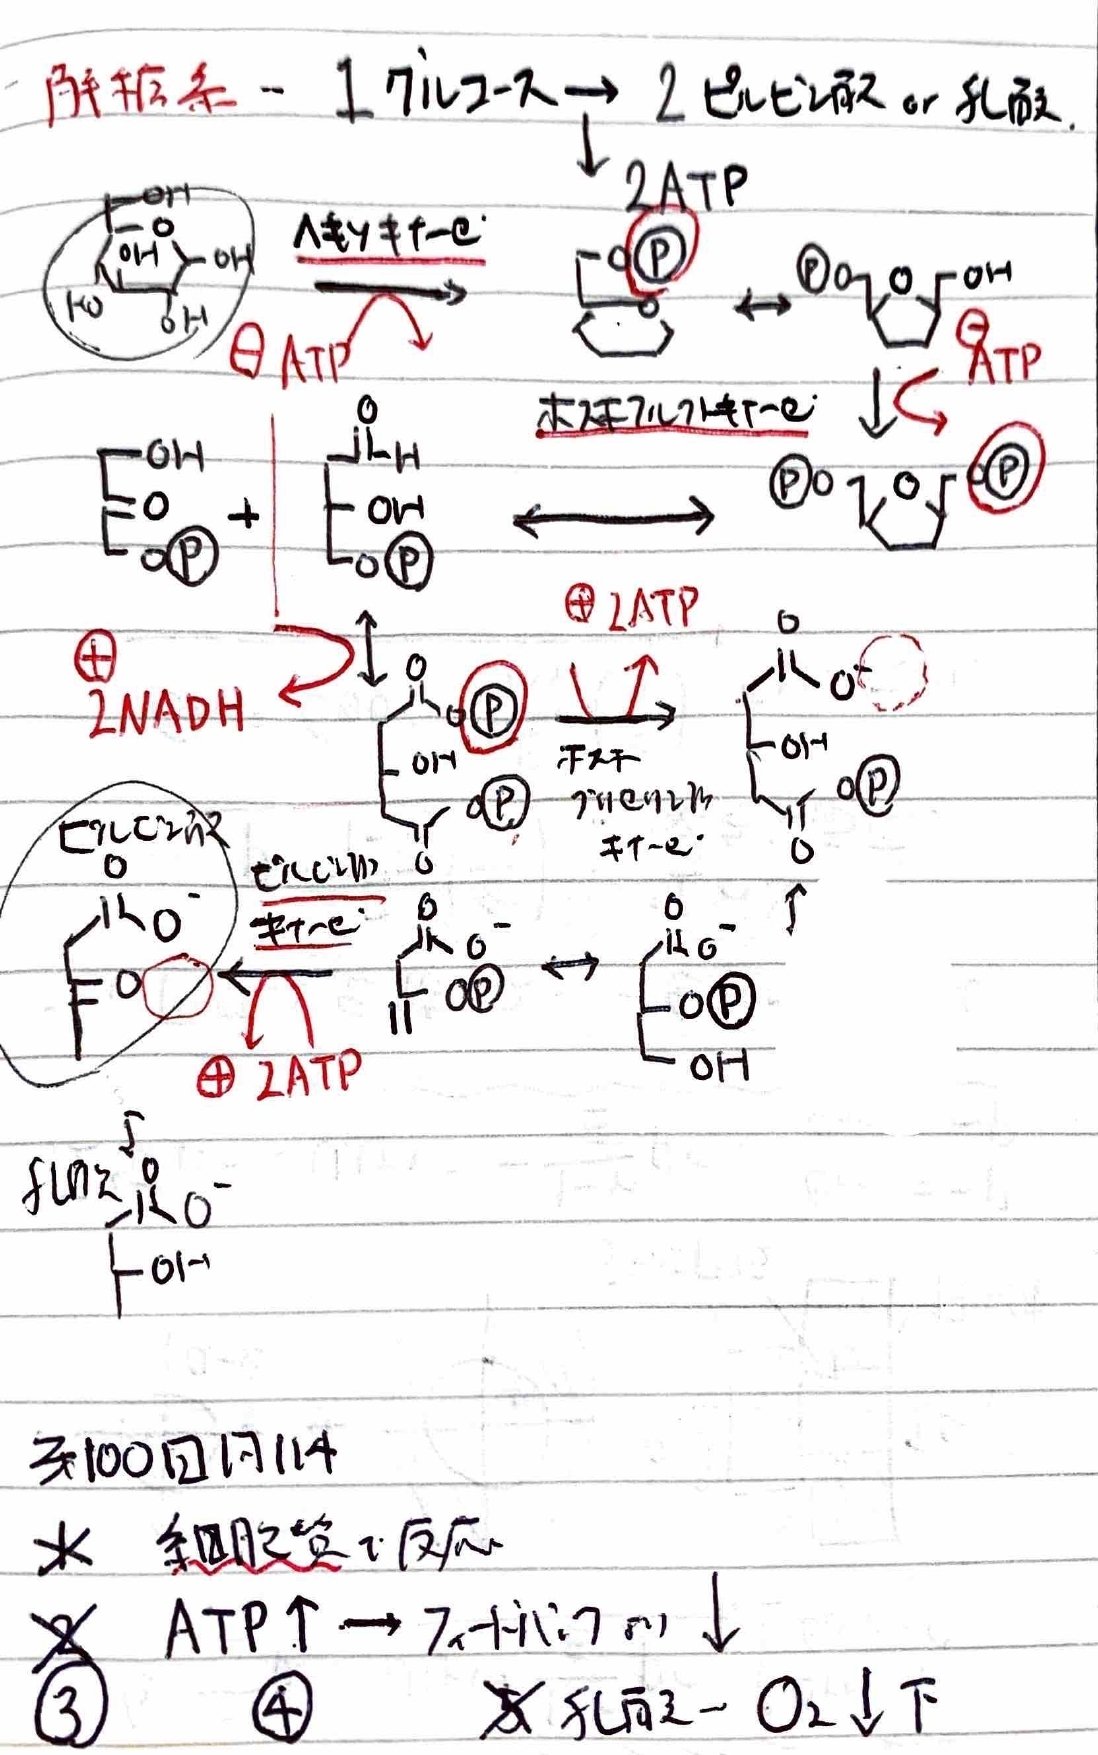 解糖系 - 1グルコース → 2ピルビン酸 or 乳酸.
↓
2ATP
OH
O
OH
OH
HO
OH
ヘキソキナーゼ
⊖ ATP
O Ⓟ
O
↔
ⓅO O OH
⊖ ATP
ホスホフルクトキナーゼ
OH
O
OⓅ
+
O
H
OH
OⓅ
↔
ⓅO O OⓅ
⊕
2NADH
O
OⓅ
OH
OⓅ
O
⊕ 2ATP
ホスホ
グリセリン酸
キナーゼ
O
O⁻
OH
OⓅ
O
ピルビン酸
O
O⁻
O
ピルビン酸
キナーゼ
⊕ 2ATP
O
O⁻
OⓅ
↔
O
O⁻
OⓅ
OH
乳酸
O
O⁻
OH
100回 114
細胞質で反応
2 ATP↑ → フィードバック ↓
③ ④ 5 乳酸 - O₂↓下